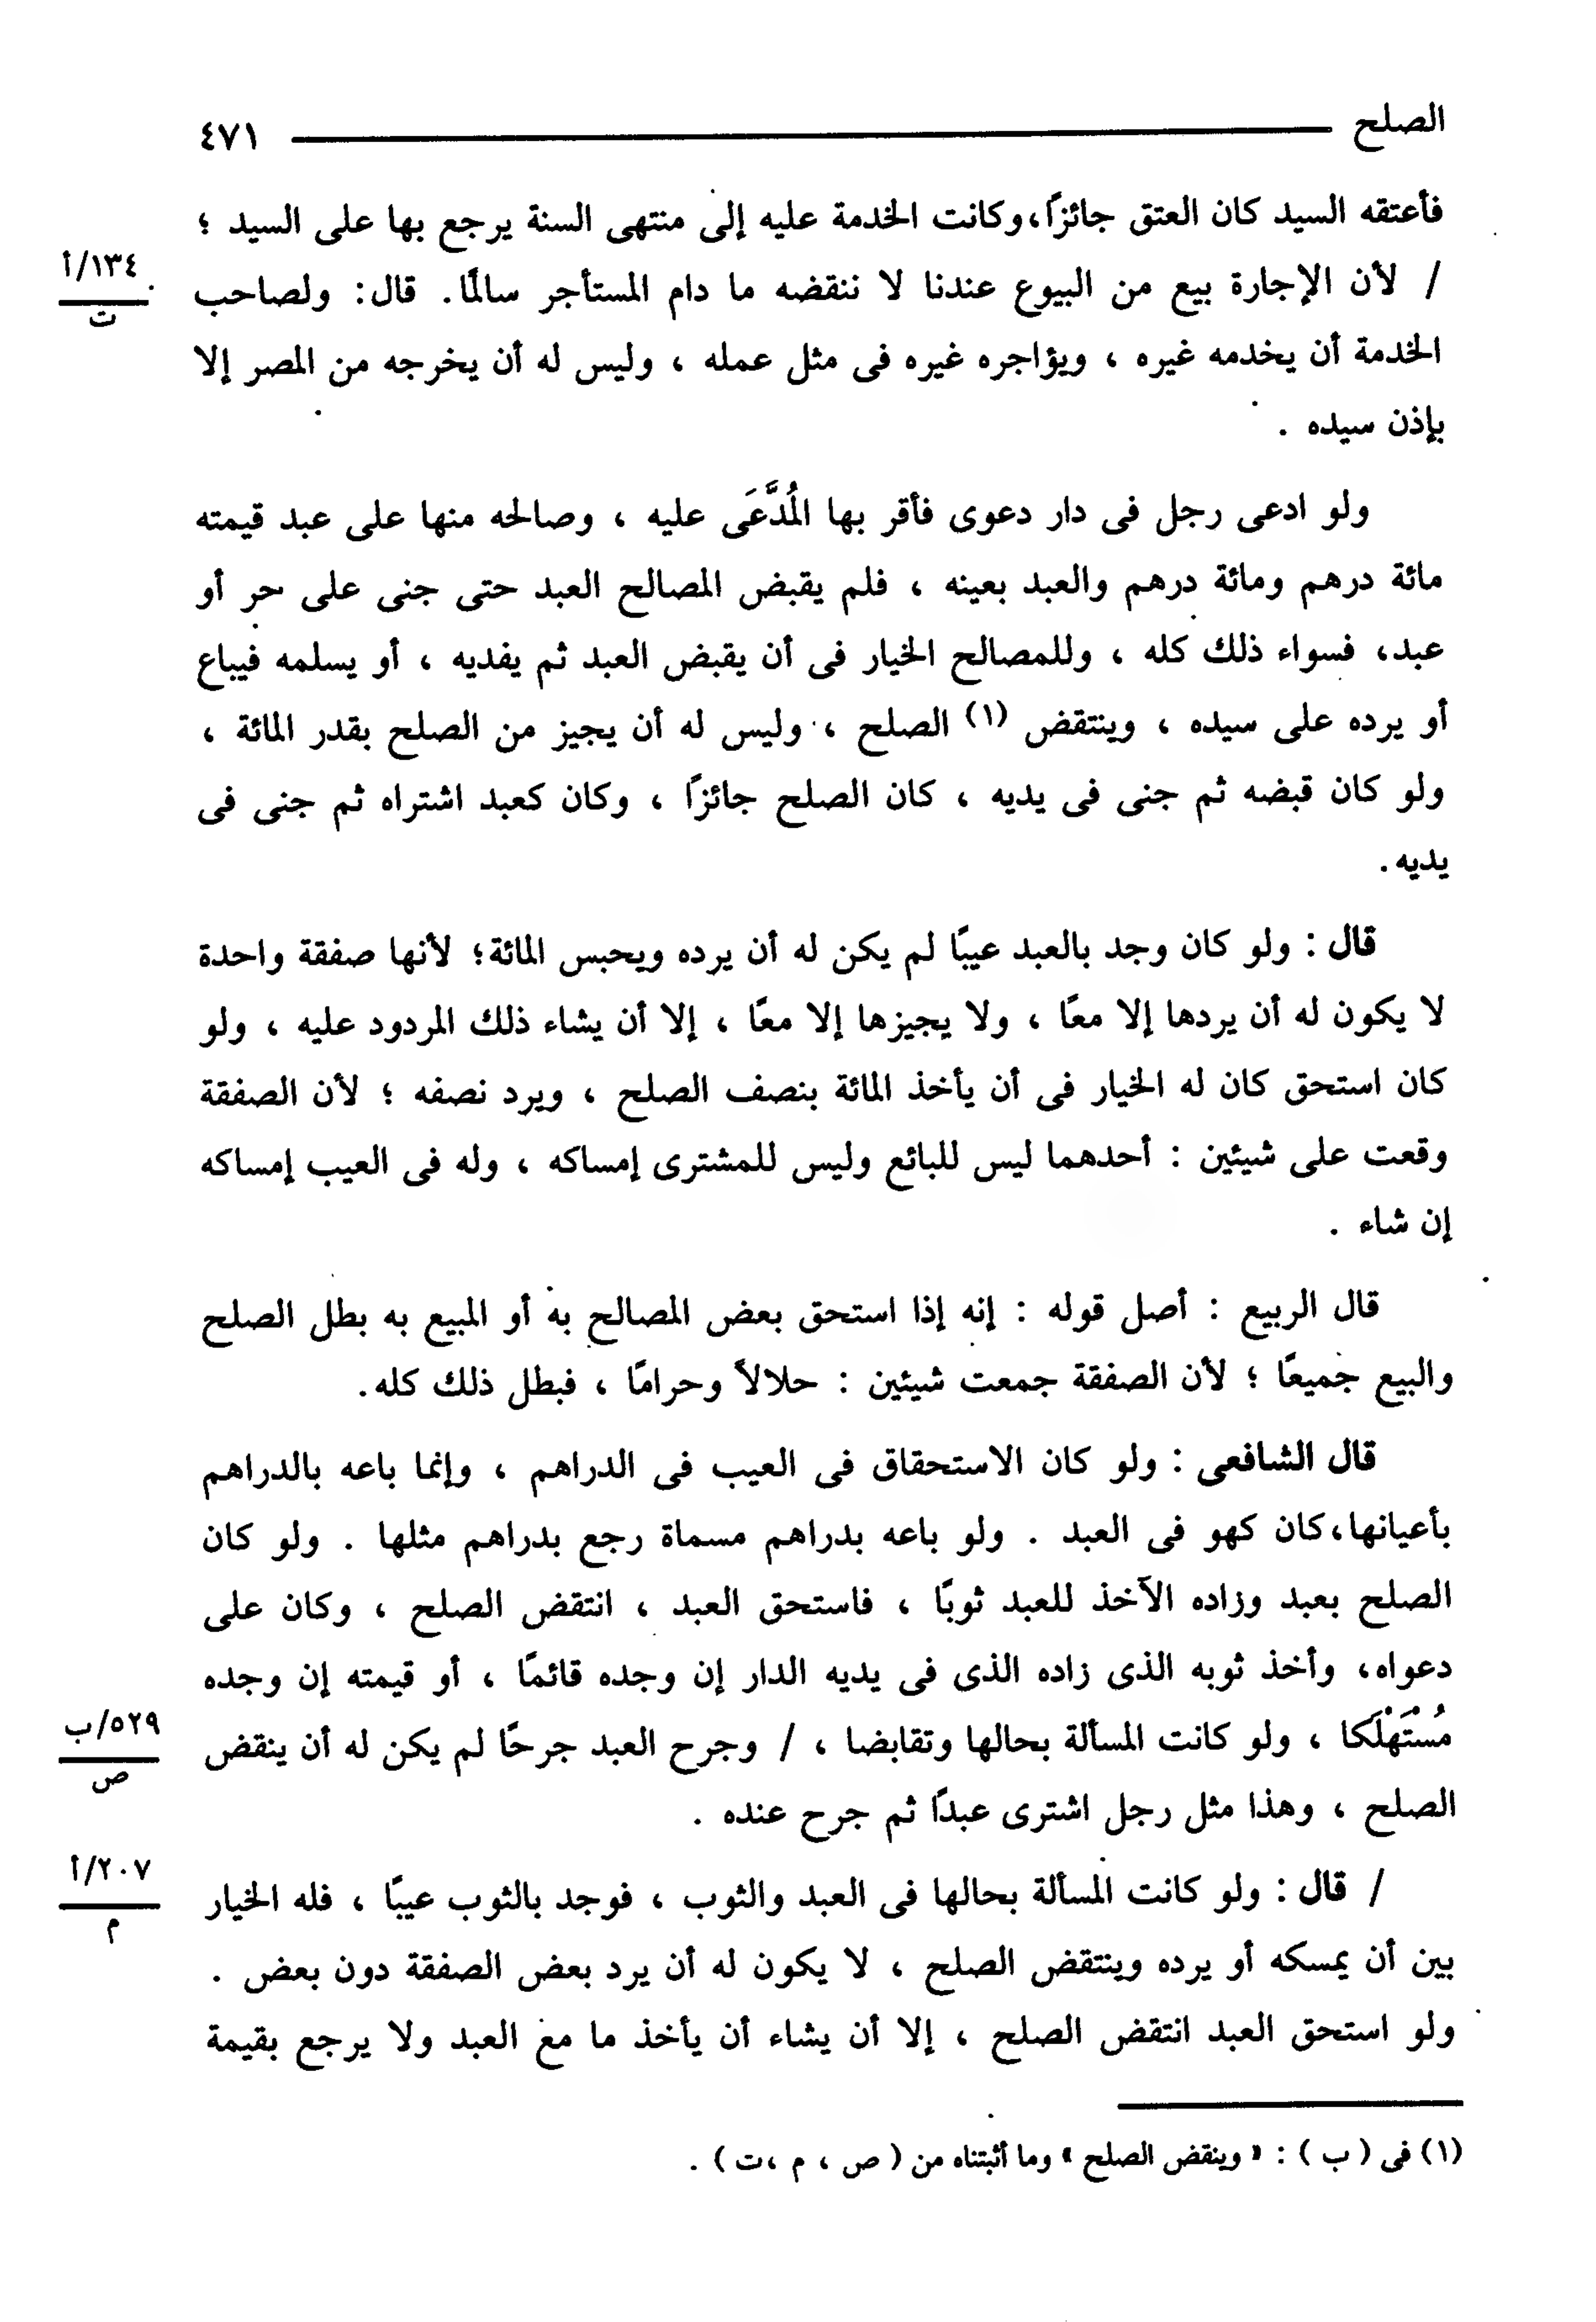 الصلح ٤٧١
فأعتقه السيد كان العتق جائزًا، وكانت الخدمة عليه إلى منتهى السنة يرجع بها على السيد ؛
١٣٤/أ
ت
/ لأن الإجارة بيع من البيوع عندنا لا ننقضه ما دام المستأجر سالمًا. قال: ولصاحب
الخدمة أن يخدمه غيره ، ويؤاجره غيره فى مثل عمله ، وليس له أن يخرجه من المصر إلا
بإذن سيده .
ولو ادعى رجل فى دار دعوى فأقر بها المُدَّعَى عليه ، وصالحه منها على عبد قيمته
مائة درهم ومائة درهم والعبد بعينه ، فلم يقبض المصالح العبد حتى جنى على حر أو
عبد، فسواء ذلك كله ، وللمصالح الخيار فى أن يقبض العبد ثم يفديه ، أو يسلمه فيباع
أو يرده على سيده ، وينتقض (١) الصلح ، وليس له أن يجيز من الصلح بقدر المائة ،
ولو كان قبضه ثم جنى فى يديه ، كان الصلح جائزًا ، وكان كعبد اشتراه ثم جنى فى
يديه .
قال : ولو كان وجد بالعبد عيبًا لم يكن له أن يرده ويحبس المائة؛ لأنها صفقة واحدة
لا يكون له أن يردها إلا معًا ، ولا يجيزها إلا معًا ، إلا أن يشاء ذلك المردود عليه ، ولو
كان استحق كان له الخيار فى أن يأخذ المائة بنصف الصلح ، ويرد نصفه ؛ لأن الصفقة
وقعت على شيئين : أحدهما ليس للبائع وليس للمشترى إمساكه ، وله فى العيب إمساكه
إن شاء .
قال الربيع : أصل قوله : إنه إذا استحق بعض المصالح به أو المبيع به بطل الصلح
والبيع جميعًا ؛ لأن الصفقة جمعت شيئين : حلالاً وحرامًا ، فبطل ذلك كله.
قال الشافعى : ولو كان الاستحقاق فى العيب فى الدراهم ، وإنما باعه بالدراهم
بأعيانها، كان كهو فى العبد . ولو باعه بدراهم مسماة رجع بدراهم مثلها . ولو كان
الصلح بعبد وزاده الآخذ للعبد ثوبًا ، فاستحق العبد ، انتقض الصلح ، وكان على
دعواه، وأخذ ثوبه الذى زاده الذى فى يديه الدار إن وجده قائمًا ، أو قيمته إن وجده
٥٢٩/ب
ص
مُسْتَهْلَكا ، ولو كانت المسألة بحالها وتقابضا ، / وجرح العبد جرحًا لم يكن له أن ينقض
الصلح ، وهذا مثل رجل اشترى عبدًا ثم جرح عنده .
٢٠٧/أ
م
/ قال : ولو كانت المسألة بحالها فى العبد والثوب ، فوجد بالثوب عيبًا ، فله الخيار
بين أن يمسكه أو يرده وينتقض الصلح ، لا يكون له أن يرد بعض الصفقة دون بعض .
ولو استحق العبد انتقض الصلح ، إلا أن يشاء أن يأخذ ما مع العبد ولا يرجع بقيمة
(١) فى ( ب ) : « وينقض الصلح » وما أثبتناه من ( ص ، م ،ت ) .